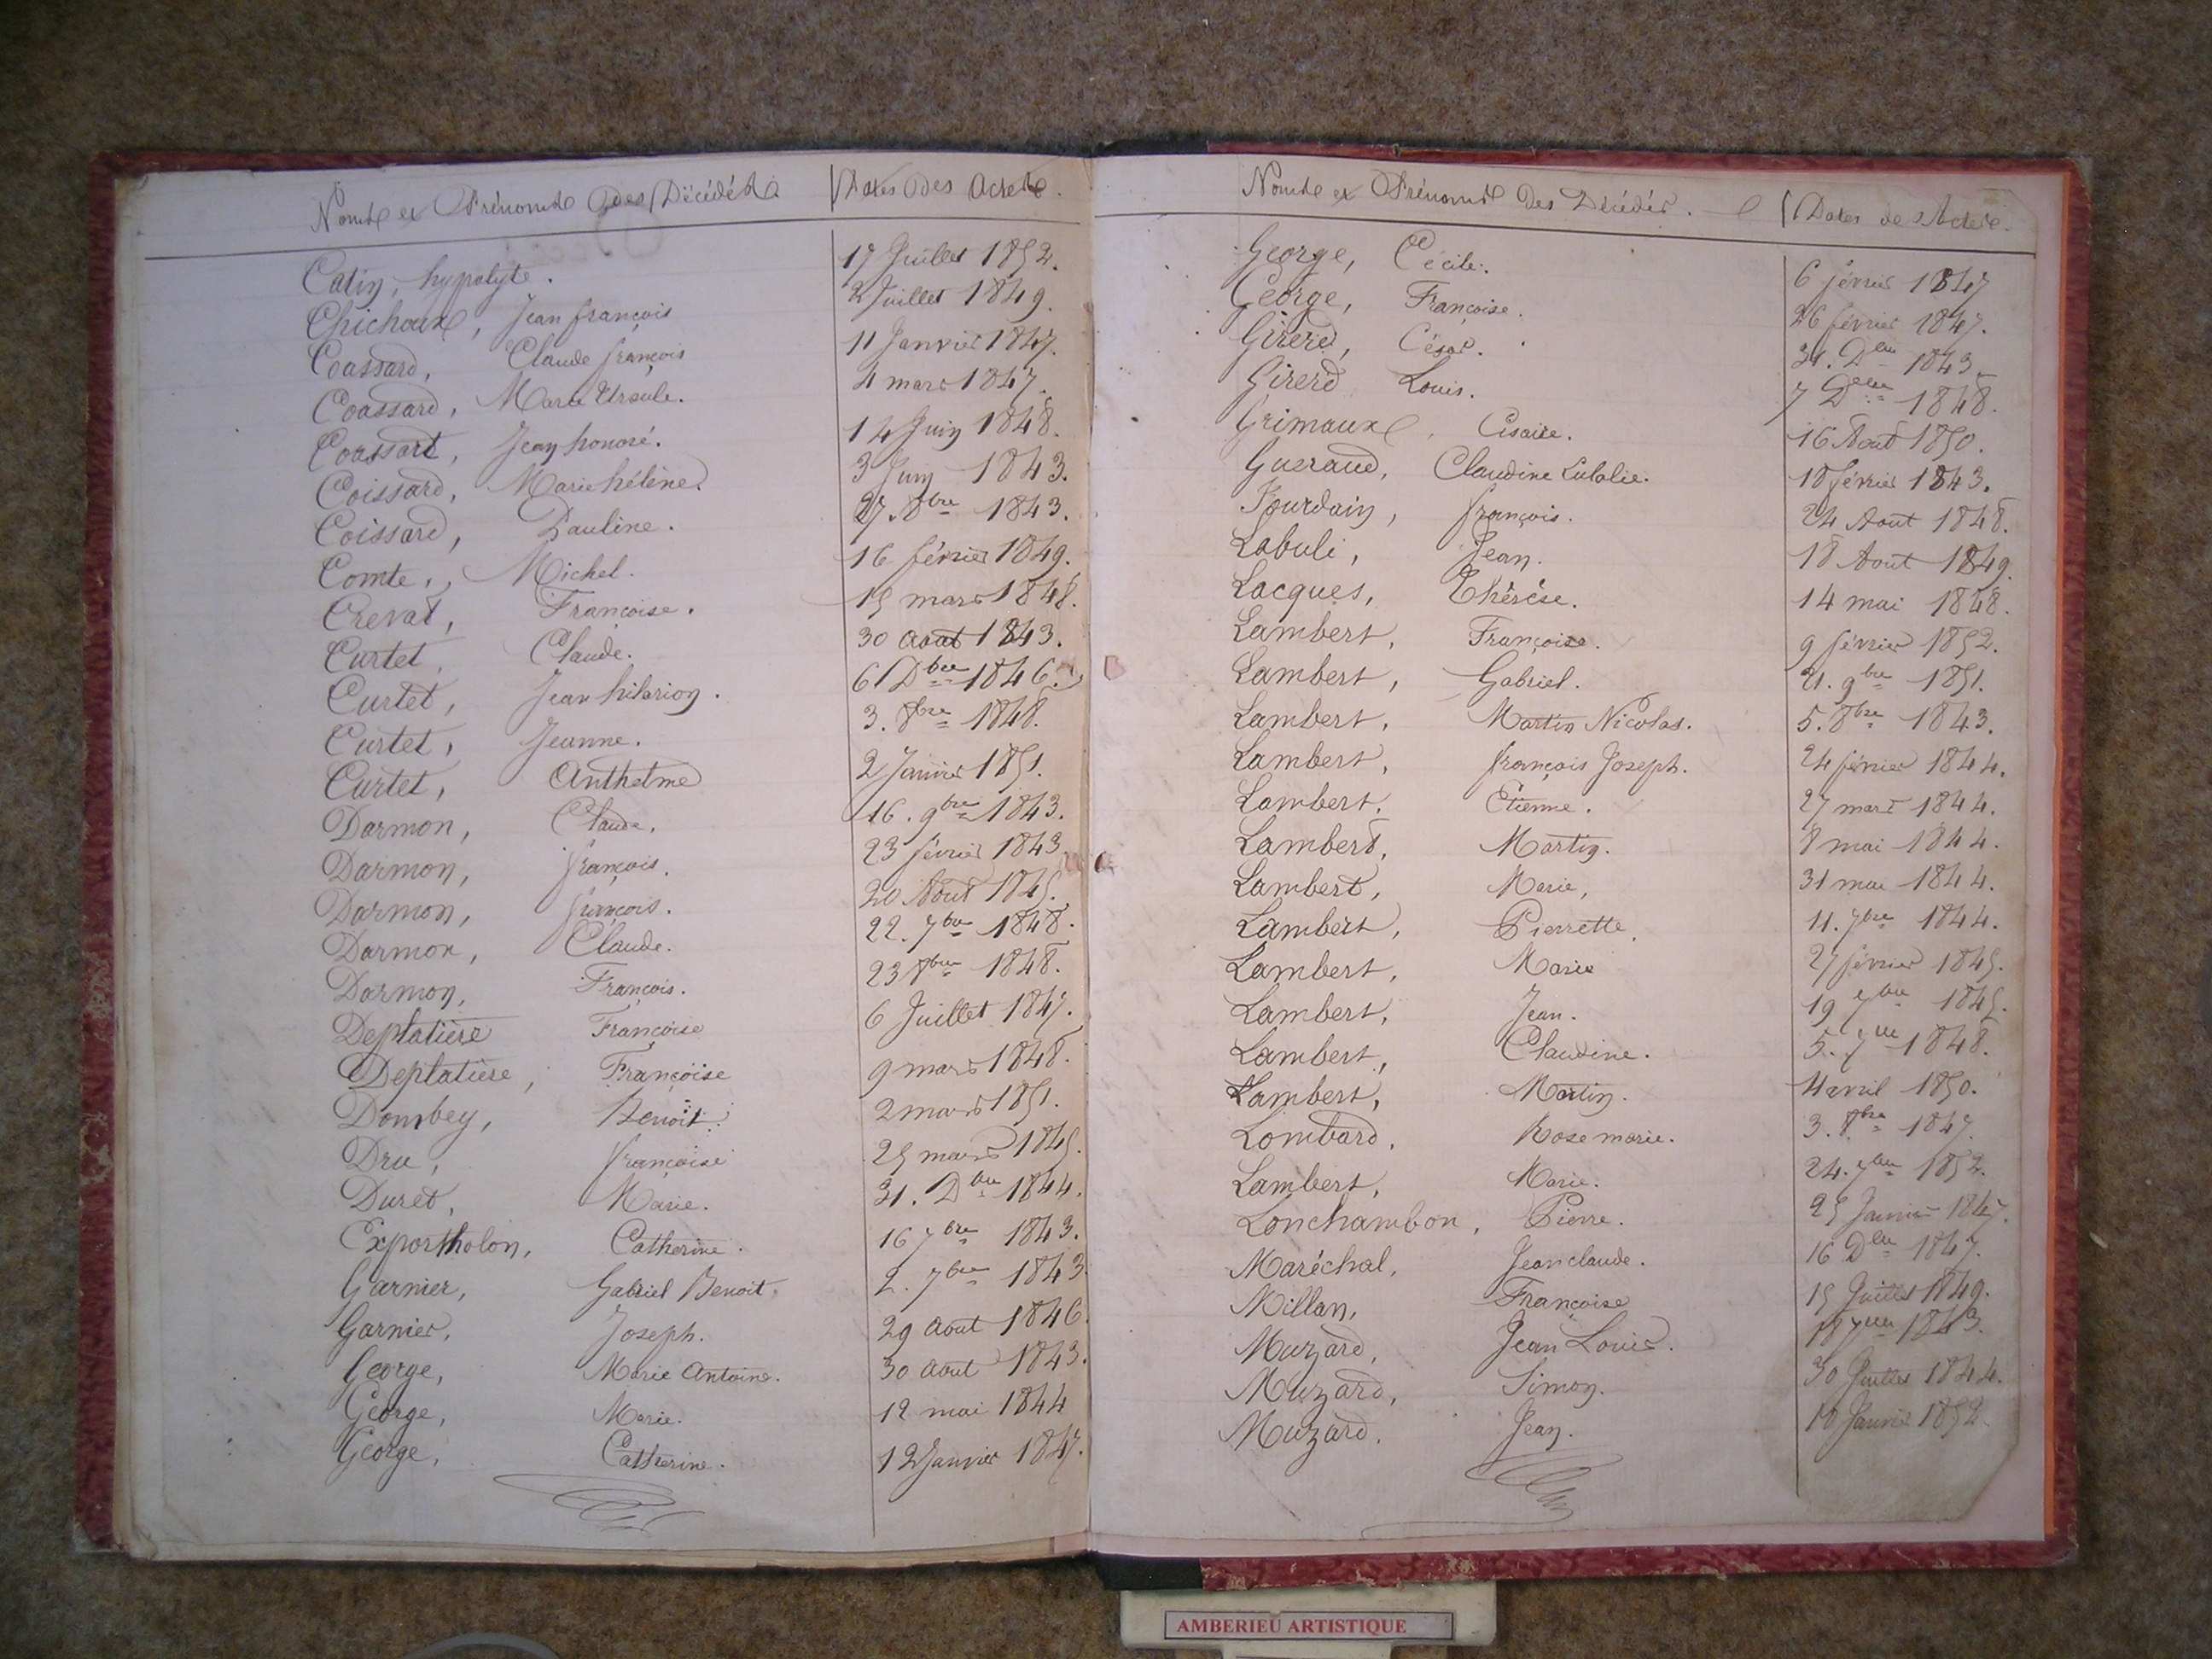 Noms et Prénoms des Décédés. Dates des Actes.
Catin, hypolyte. 17 Juillet 1852.
Chichoux, Jean françois 2 Juillet 1849.
Coassard, Claude françois 11 Janvier 1847.
Coassard, Marie Ursule. 4 mars 1847.
Coassart, Jean honoré. 14 Juin 1848.
Coissard, Marie hélène. 3 Juin 1843.
Coissard, Pauline. 27 8bre 1843.
Comte, Michel. 16 février 1849.
Crevat, Françoise. 15 mars 1848.
Curtet, Claude. 30 Aout 1843.
Curtet, Jean hilarion. 6 Dbre 1846.
Curtet, Jeanne. 3. 8bre 1848.
Curtet, Anthelme 2 Janvier 1851.
Darmon, Claude. 16. 9bre 1843.
Darmon, françois. 23 février 1843
Darmon, françois. 20 Aout 1845.
Darmon, Claude. 22. 7bre 1848.
Darmon, François. 23 8bre 1848.
Deplatière Françoise 6 Juillet 1847.
Deplatière, Françoise 9 mars 1848.
Dombey, Benoit. 2 mars 1851.
Dru, françoise 25 mars 1845.
Duret, Marie. 31. Dbre 1844.
Exportholon, Catherine. 16 7bre 1843.
Garnier, Gabriel Benoit. 2. 7bre 1843
Garnier, Joseph. 29 Aout 1846
George, Marie Antoine. 30 Aout 1843.
George, Marie. 12 mai 1844
George, Catherine. 12 Janvier 1847.
Noms et Prénoms des Décédés. Dates des Actes.
George, Cécile. 6 février 1847
George, Françoise. 26 février 1847.
Girerd, César. 31. Dbre 1843.
Girerd Louis. 7 Dbre 1848.
Grimaux, Cisaire. 16 Aout 1850.
Gueraud, Claudine Eulalie. 18 février 1843.
Jourdain, françois. 24 Aout 1848.
Labuli, Jean. 18 Aout 1849.
Lacques, Thérèse. 14 mai 1848.
Lambert, Françoise. 9 février 1852.
Lambert, Gabriel. 21. 9bre 1851.
Lambert, Martin Nicolas. 5. 8bre 1843.
Lambert, françois Joseph. 24 février 1844.
Lambert, Etienne. 27 mars 1844.
Lambert, Martin. 8 mai 1844.
Lambert, Marie, 31 mai 1844.
Lambert, Pierrette. 11. 7bre 1844.
Lambert, Marie 27 février 1845.
Lambert, Jean. 19 7bre 1845.
Lambert, Claudine. 5. 7bre 1848.
Lambert, Martin. 4 avril 1850.
Lombard, Rose marie. 3. 8bre 1847.
Lambert, Marie. 24. 7bre 1852.
Lonchambon, Pierre. 25 Janvier 1847.
Maréchal, Jean claude. 16 Dbre 1847.
Millan, Françoise 15 Juillet 1849.
Muzard, Jean Louis. 18 7bre 1843.
Muzard, Simon. 30 Juillet 1844.
Muzard, Jean. 10 Janvier 1852.
AMBERIEU ARTISTIQUE